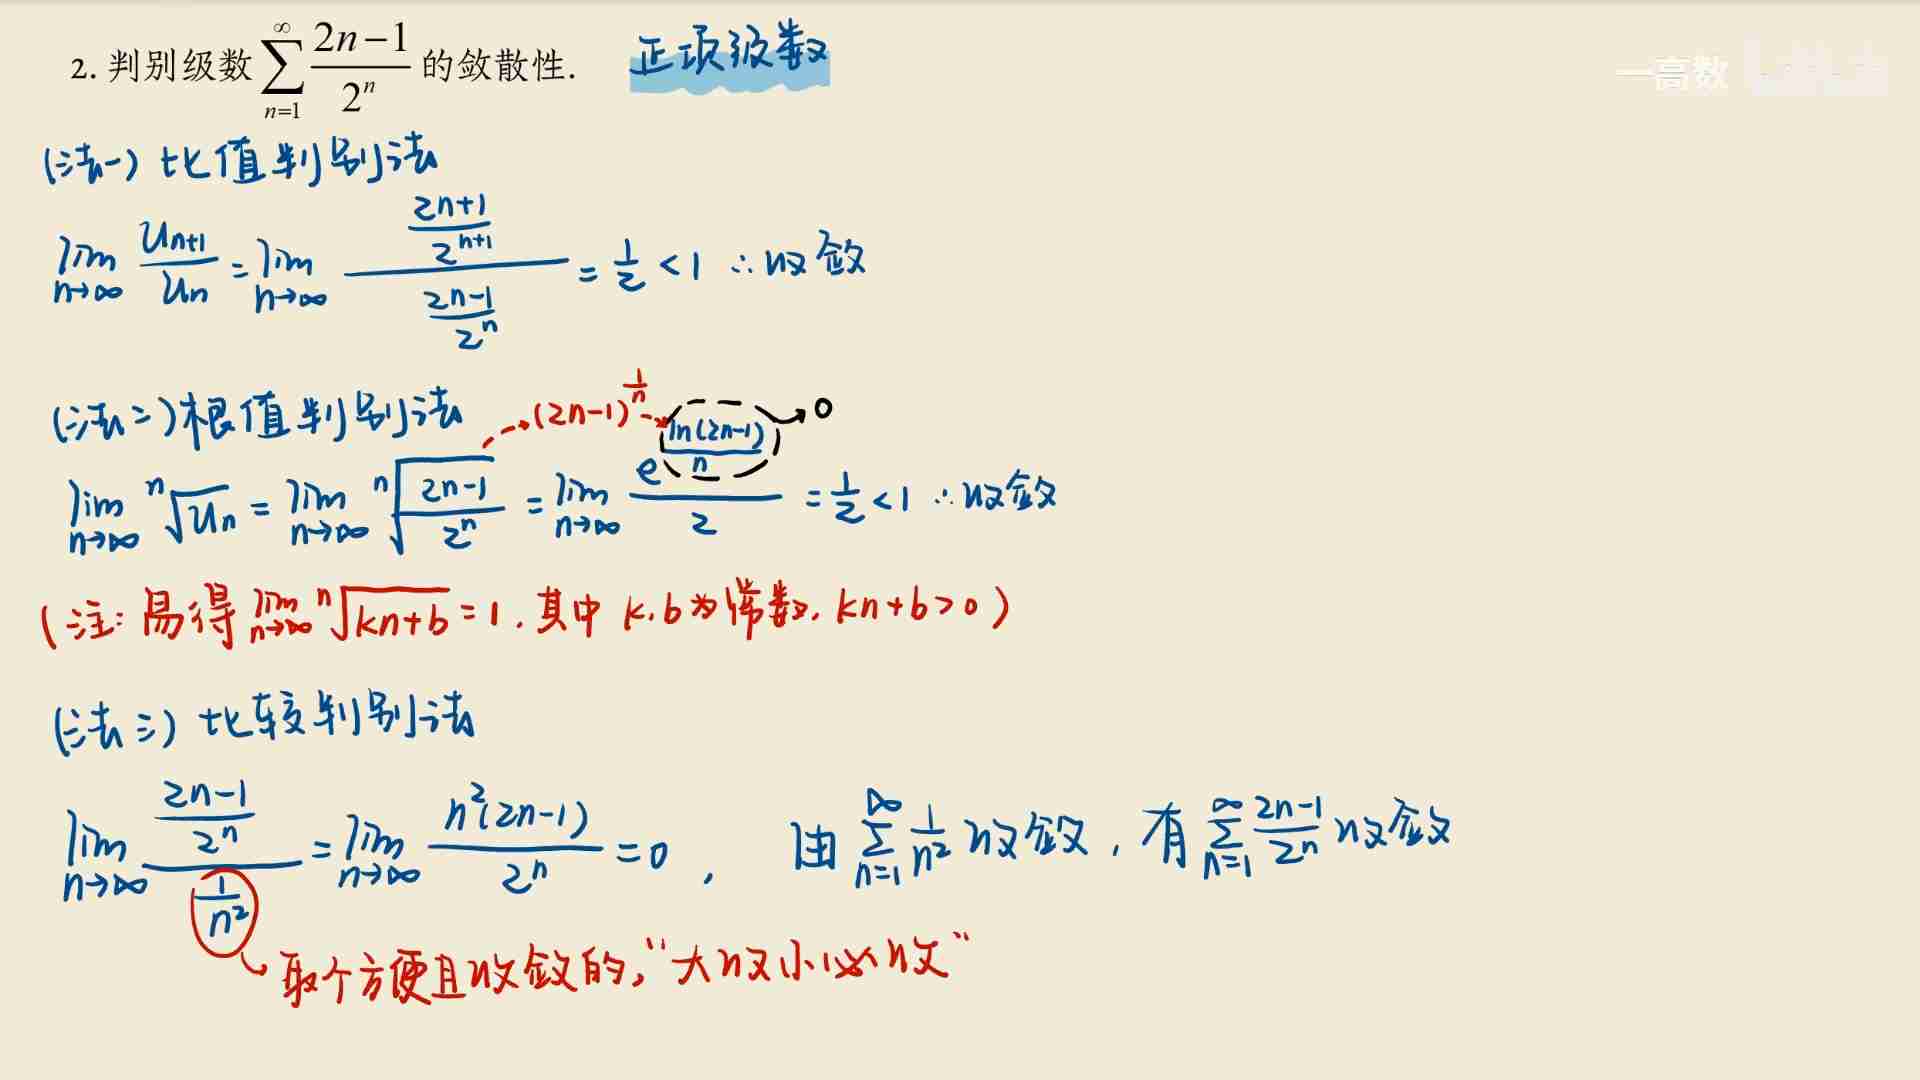 2. 判别级数 \sum_{n=1}^{\infty} \frac{2n-1}{2^n} 的敛散性. 正项级数
一高数
(法一) 比值判别法
\lim_{n→∞} \frac{u_{n+1}}{u_n} = \lim_{n→∞} \frac{\frac{2n+1}{2^{n+1}}}{\frac{2n-1}{2^n}} = \frac{1}{2} < 1 ∴收敛
(法二) 根值判别法 (2n-1)^{\frac{1}{n}} 0
\lim_{n→∞} \sqrt[n]{u_n} = \lim_{n→∞} \sqrt[n]{\frac{2n-1}{2^n}} = \lim_{n→∞} \frac{e^{\frac{\ln(2n-1)}{n}}}{2} = \frac{1}{2} < 1 ∴收敛
(注: 易得 \lim_{n→∞} \sqrt[n]{kn+b} = 1, 其中 k, b 为常数, kn+b>0)
(法三) 比较判别法
\lim_{n→∞} \frac{\frac{2n-1}{2^n}}{\frac{1}{n^2}} = \lim_{n→∞} \frac{n^2(2n-1)}{2^n} = 0, 由 \sum_{n=1}^{∞} \frac{1}{n^2} 收敛, 有 \sum_{n=1}^{∞} \frac{2n-1}{2^n} 收敛
取个方便且收敛的, “大收小必收”